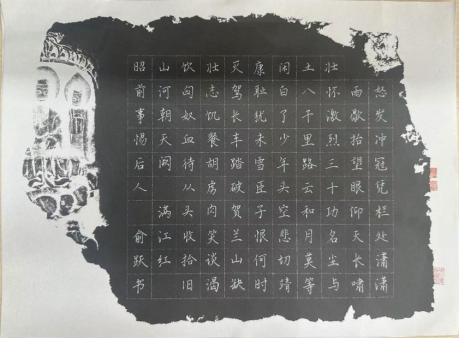 怒发冲冠凭栏处潇潇
雨歇抬望眼仰天长啸
壮怀激烈三十功名尘与
土八千里路云和月莫等
闲白了少年头空悲切靖
康耻犹未雪臣子恨何时
灭驾长车踏破贺兰山缺
壮志饥餐胡虏肉笑谈渴
饮匈奴血待从头收拾旧
山河朝天阙 满江红
昭前事惕后人 俞跃书